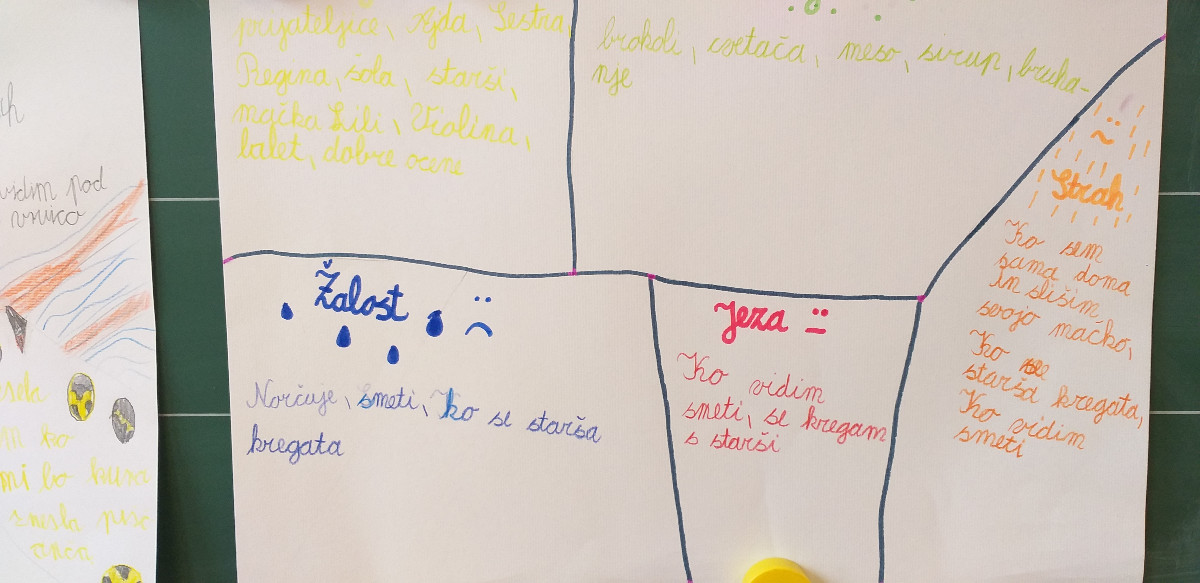 prijateljice, Ajda, Sestra
Regina, šola, starši,
mačka Lili, Violina,
balet, dobre ocene
brokoli, cvetača, meso, sirup, bruha-
nje
Strah
Ko sem
sama doma
in slišim
svojo mačko,
Ko se
starša kregata,
Ko vidim
smeti
Žalost
Norčuje, smeti, ko se starša
kregata
Jeza
Ko vidim
smeti, se kregam
s starši
pod
ko
mi bo kura